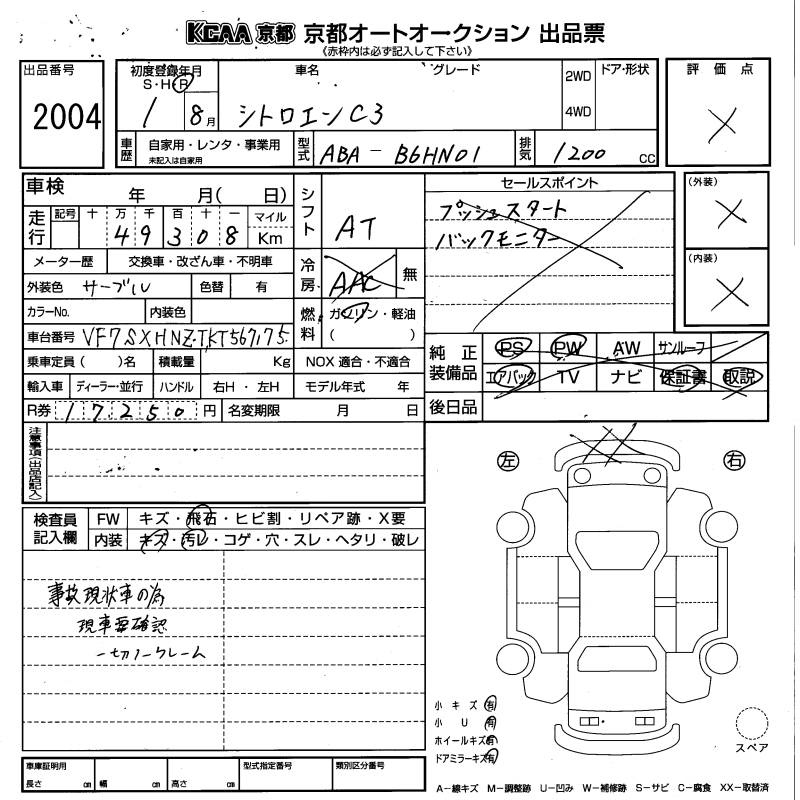 KCAA 京都 京都オートオークション 出品票
《赤枠内は必ず記入して下さい》
出品番号
2004
初度登録年月
S・H・R
1 8月
車名
グレード
シトロエンC3
2WD
4WD
ドア・形状
評価点
車歴
自家用・レンタ・事業用
未記入は自家用
型式
ABA-B6HN01
排気
1200 CC
車検 年 月( 日)
シフト
AT
走行
記号 十 万 千 百 十 一 マイル
49308 Km
メーター歴 交換車・改ざん車・不明車
冷房
AAC
無
外装色 サーブル 色替 有
カラーNo. 内装色
燃料
ガソリン・軽油
( )
車台番号 VF7SXHNZTKT567175
乗車定員( )名 積載量 Kg NOX 適合・不適合
輸入車 ディーラー・並行 ハンドル 右H・左H モデル年式 年
R券 17250 円 名変期限 月 日
セールスポイント
プッシュスタート
バックモニター
(外装)
(内装)
純正装備品
PS PW AW サンルーフ
エアバック TV ナビ 保証書 取説
後日品
注意事項(出品店記入)
検査員記入欄
FW キズ・飛石・ヒビ割・リペア跡・X要
内装 キズ・汚レ・コゲ・穴・スレ・ヘタリ・破レ
事故現状車の為
現車要確認
一切ノークレーム
左
右
小キズ 有
小U 有
ホイールキズ 有
ドアミラーキズ 有
スペア
車庫証明用
長さ cm 幅 cm 高さ cm
型式指定番号
類別区分番号
A-線キズ M-調整跡 U-凹み W-補修跡 S-サビ C-腐食 XX-取替済